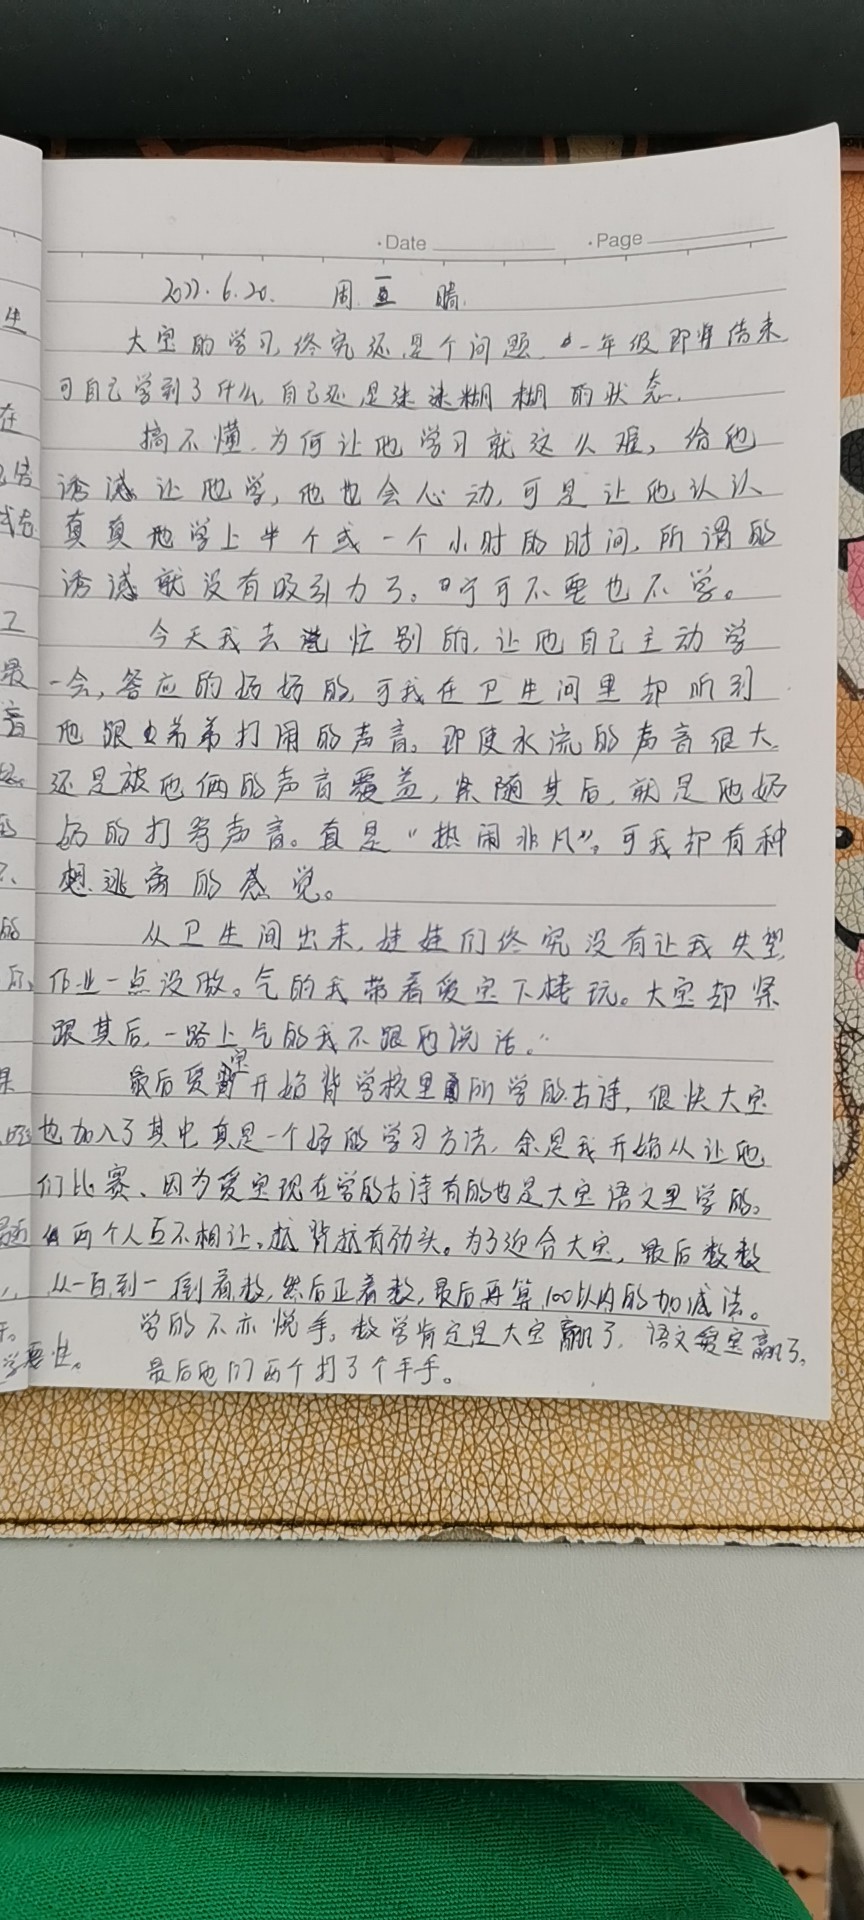 ·Date
·Page
2022.6.20. 周五 晴.
大宝的学习,终究还是个问题.一年级即将结束
可自己学到了什么,自己还是迷迷糊糊的状态.
搞不懂.为何让他学习就这么难,给他
诱惑让他学,他也会心动,可是让他认认
真真地学上半个或一个小时的时间,所谓的
诱惑就没有吸引力了。宁可不要也不学。
今天我去忙别的,让他自己主动学
一会,答应的好好的,可我在卫生间里却听到
他跟弟弟打闹的声音。即使水流的声音很大
还是被他俩的声音覆盖,紧随其后,就是他奶
奶的打骂声音。真是“热闹非凡”,可我却有种
想逃离的感觉。
从卫生间出来,娃娃们终究没有让我失望,
作业一点没做。气的我带着爱宝下楼玩。大宝却紧
跟其后,一路上气的我不跟他说话。
最后爱宝开始背学校里所学的古诗,很快大宝
也加入了其中,真是一个好的学习方法,余是我开始从让他
们比赛、因为爱宝现在学的古诗有的也是大宝语文里学的。
两个人互不相让,越背越有劲头。为了迎合大宝,最后数数
从一百到一倒着数,然后正着数,最后再算100以内的加减法。
学的不亦悦乎。数学肯定是大宝赢了,语文爱宝赢了。
最后他们两个打了个平手。